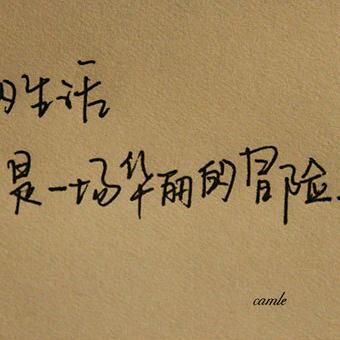 的生活
是一场华丽的冒险.
camle